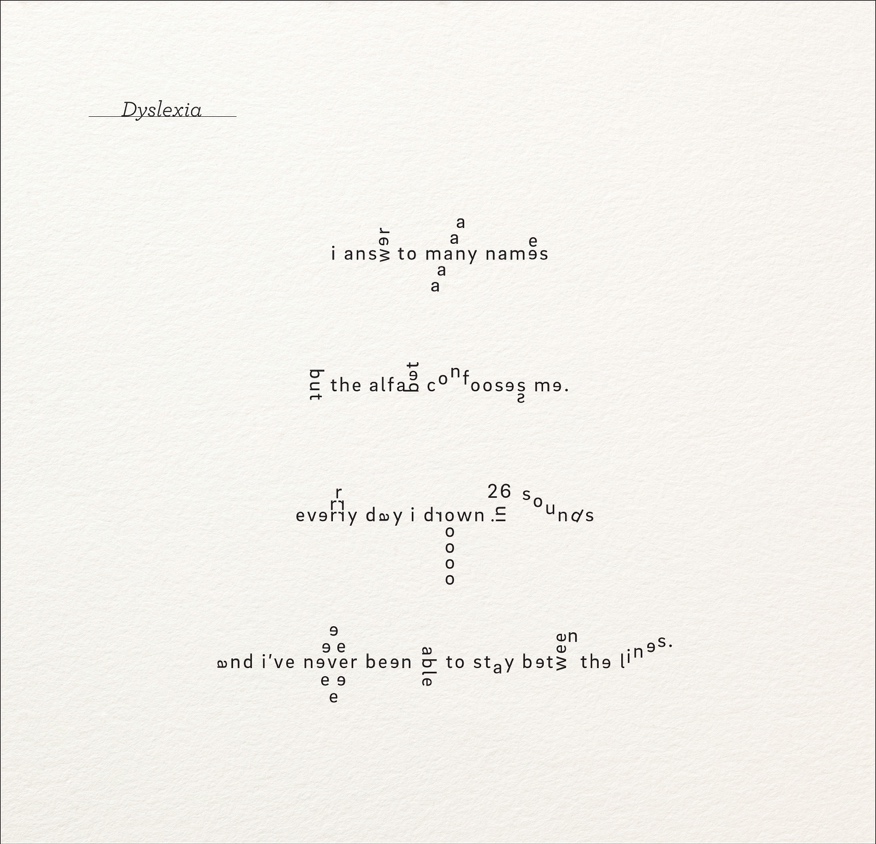 Dyslexia
i answer to maaaaany names
but the alfabet confooses me.
everrrry day i drooooown in 26 sounds
and i've never been able to stay between the lines.